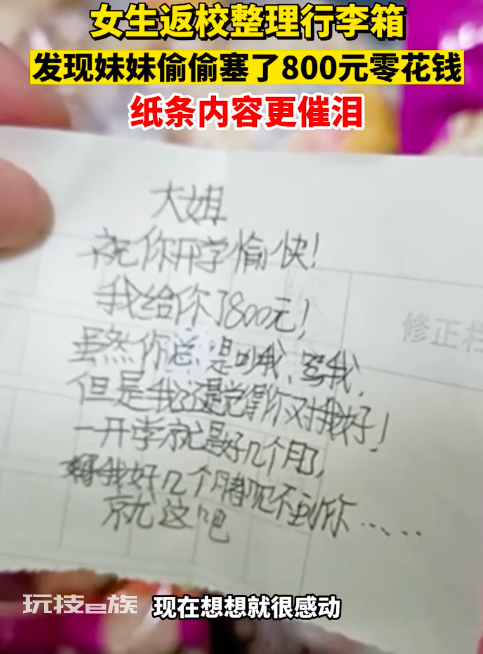 女生返校整理行李箱
发现妹妹偷偷塞了800元零花钱
纸条内容更催泪
大姐
祝你开学愉快!
我给你了800元!
修正栏
虽然你总是叼我、骂我,
但是我还是觉得你对我好!
一开学就是好几个月了,
我好几个月都见不到你……
就这吧
玩技e族
现在想想就很感动